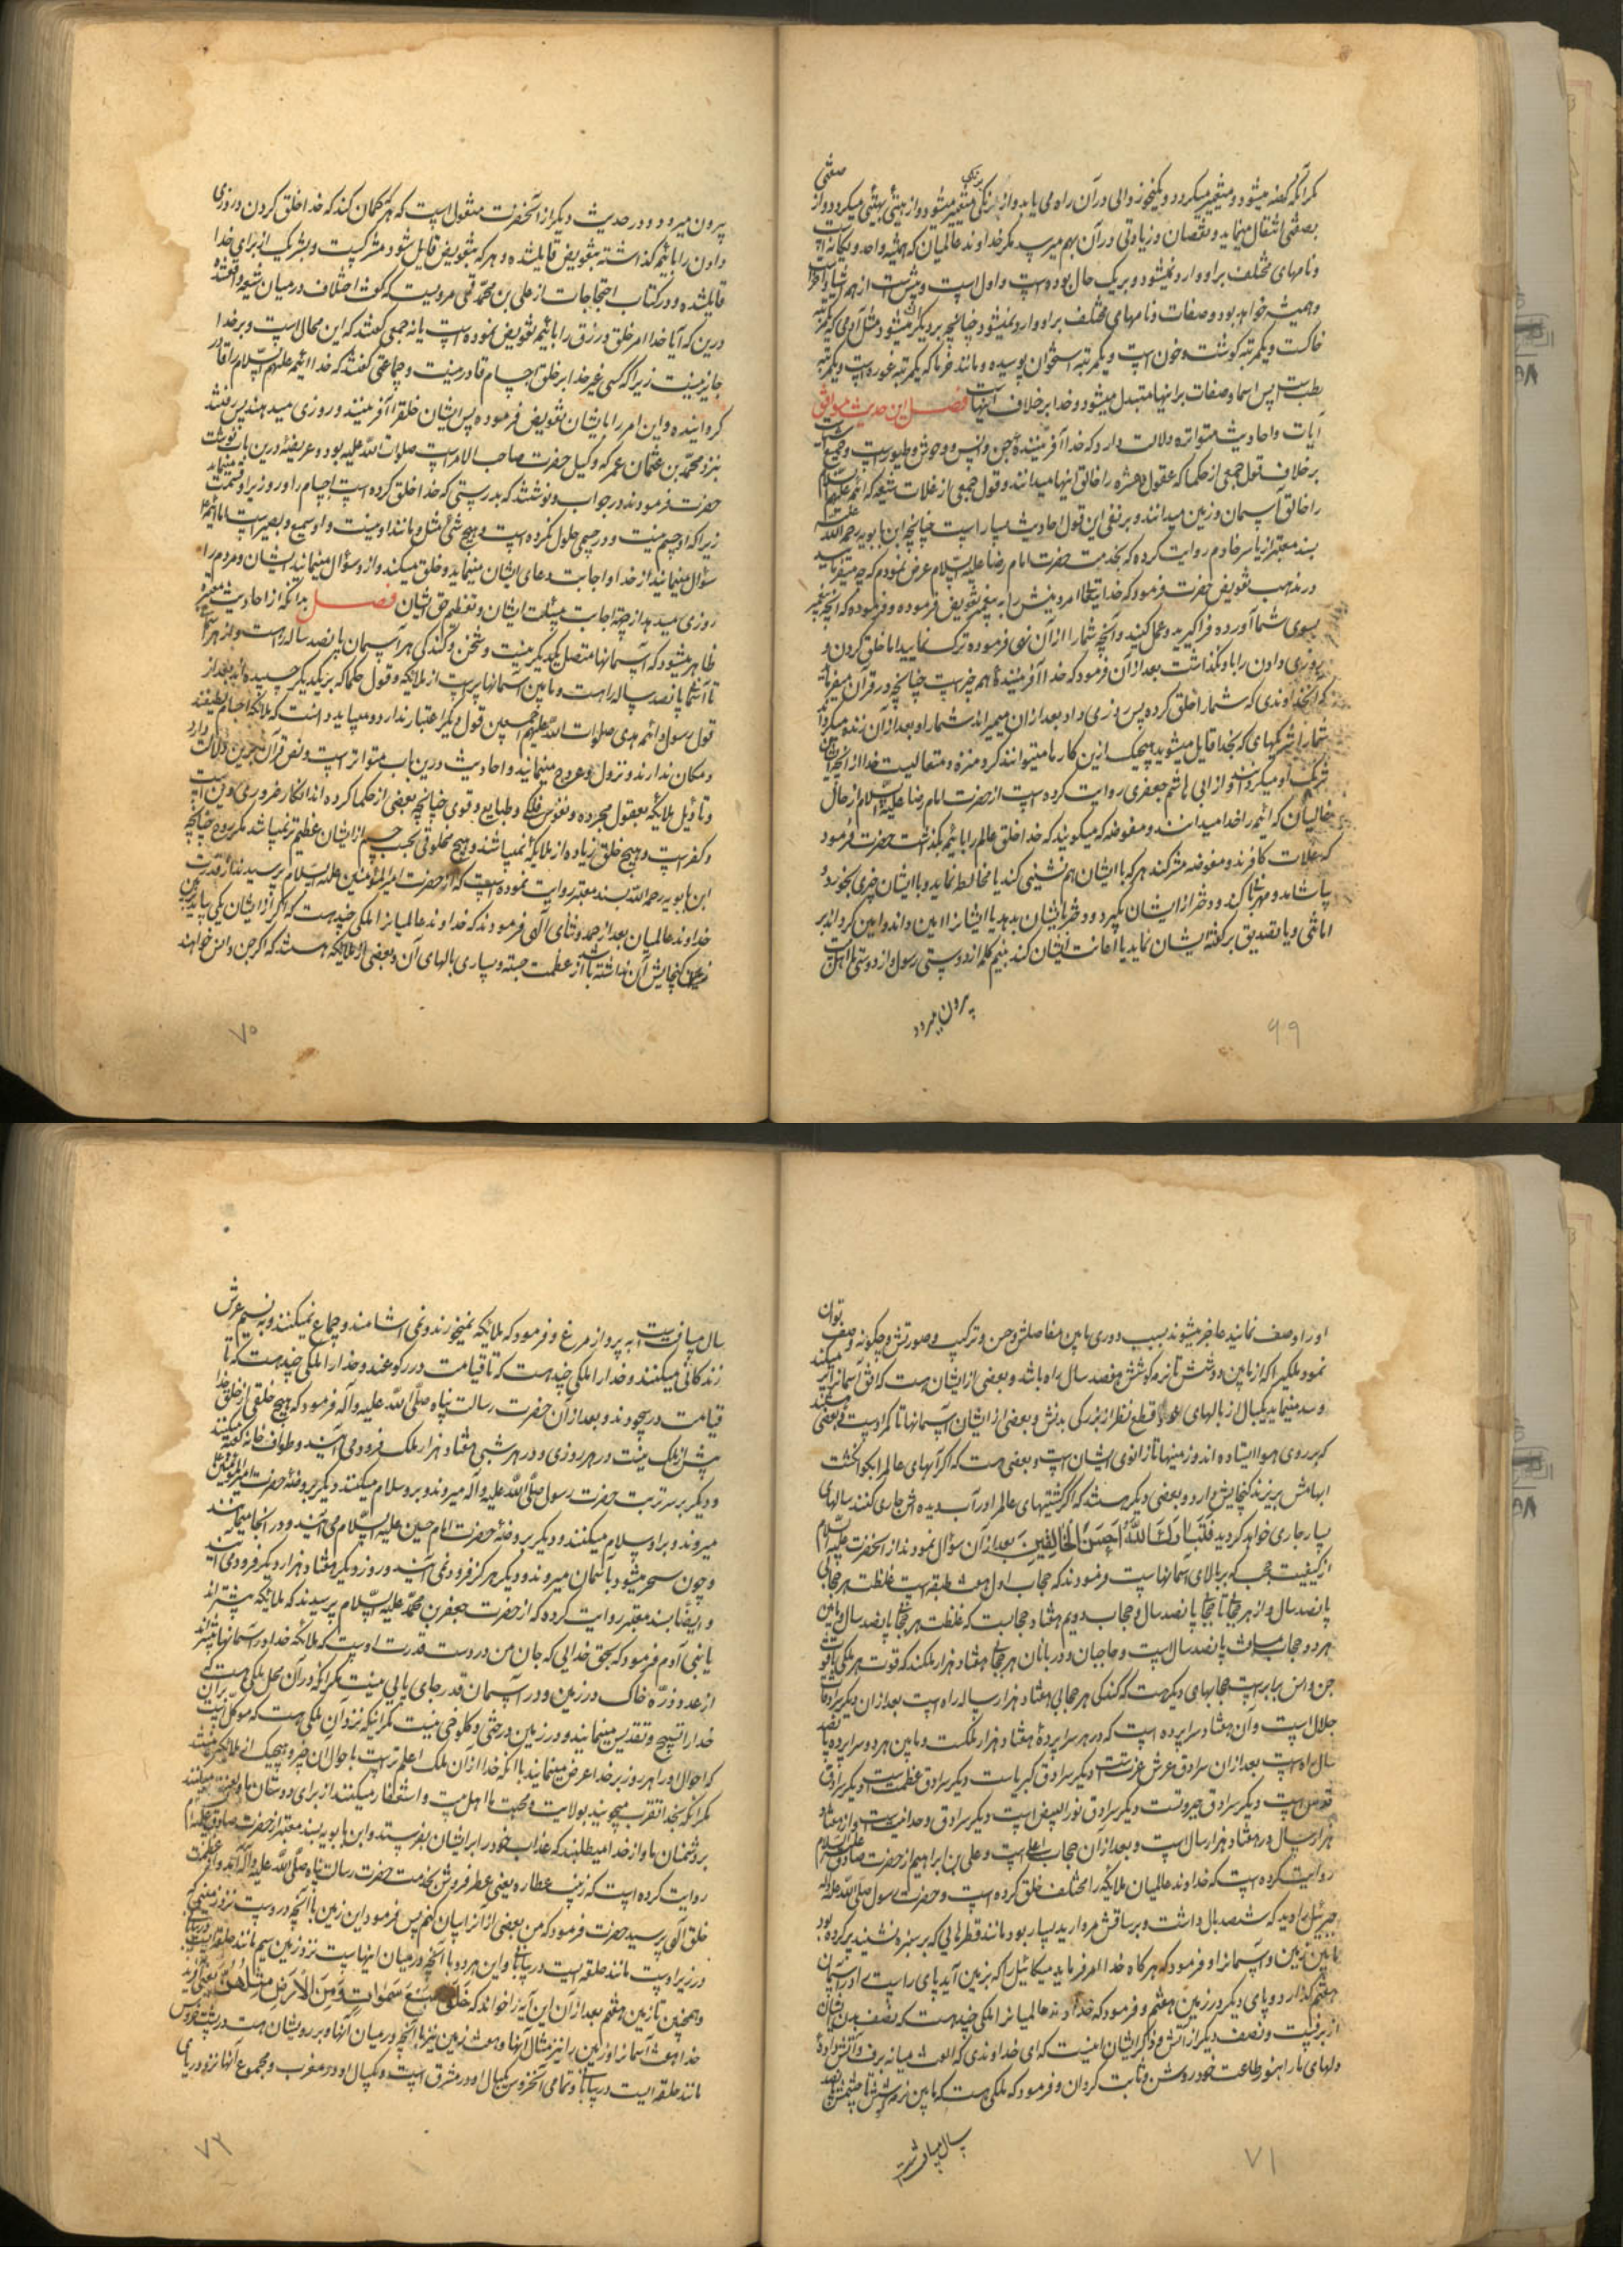 مگر آنکه کهنه میشود و متغیر میگردد و یکنحو زوالی در آن راه می یابد و از رنگی برنگی متغیر میشود و از هیئتی بهیئتی میگردد و از صفتی
بصفتی انتقال مینماید و نقصان و زیادتی در آن بهم میرسد مگر خداوند عالمیان که همیشه واحد و یگانه است
و نامهای مختلف بر او وارد نمیشود و بر یک حال بوده است و اول است و پیش است از همه اشیا و آخر
و همیشه خواهد بود و صفات و نامهای مختلف بر او وارد نمیشود چنانچه بر دیگران میشود مثل آدمی که یکمرتبه
خاکست و یکمرتبه گوشت و خون است و یکمرتبه استخوان پوسیده و مانند خرما که یکمرتبه غوره است و یکمرتبه
رطب است پس اسما و صفات بر اینها متبدل میشود و خدا بر خلاف اینهاست فصل این حدیث موافق
آیات و احادیث متواتره دلالت دارد که خدا آفریننده جن و انس و وحوش و طیور است و جمیع
بر خلاف قول جمعی از حکما که عقول عشره را خالق اینها میدانند و قول جمعی از غلات شیعه که ائمه علیهم السلام
را خالق آسمان و زمین میدانند و بر نفی این قول احادیث بسیار است چنانچه ابن بابویه رحمه الله
بسند معتبر از یاسر خادم روایت کرده که بخدمت حضرت امام رضا علیه السلام عرض نمودم که چه میفرمایید
در مذهب تفویض حضرت فرمود که خدایتعالی امر دینش را به پیغمبر تفویض فرموده و فرموده که آنچه پیغمبر
بسوی شما آورده فرا گیرید و عمل کنید و آنچه شما را از آن نهی فرموده ترک نمایید اما خلق کردن و
روزی دادن را باو نگذاشت بعد از آن فرمود که خدا آفریننده همه چیز است چنانچه در قرآن میفرماید
که آنخداوندی که شما را خلق کرده پس روزی داد بعد از آن میمیراند شما را و بعد از آن زنده میگرداند
شما را شریکهای که بخدا قایل میشوید هیچیک ازین کارها میتوانند کرد منزه و متعالیست خدا از آنچه ایشان
شریک او میگردانند و از ابی هاشم جعفری روایت کرده است از حضرت امام رضا علیه السلام از حال
غالیان که ائمه را خدا میدانند و مفوضه که میگویند که خدا خلق عالم را بائمه بگذاشت حضرت فرمود
که غلات کافرند و مفوضه مشرکند هر که با ایشان هم نشینی کند یا مخالطه نماید و با ایشان چیزی بخورد و
بیاشامد و مهربانی کند و دختر از ایشان بگیرد و دختر بایشان بدهد یا ایشان را امین داند و امین گرداند بر
امانتی و یا تصدیق بر گفته ایشان نماید یا اعانت ایشان کند بنیم کلمه از دوستی رسول و از دوستی ما اهل بیت
بیرون میرود
۶۹
بیرون میرود و در حدیث دیگر از آنحضرت منقول است که هر که گمان کند که خدا خلق کردن و روزی
دادن را بائمه گذاشته بتفویض قایلشده و هر که بتفویض قایل شود مشرکست و بشریک از برای خدا
قایلشده و در کتاب احتجاجات از علی بن محمد قمی مرویست که گفت اختلاف در میان شیعه افتاد
درین که آیا خدا امر خلق و رزق را بائمه تفویض نموده است یا نه جمعی گفتند که این محال است و بر خدا
جایز نیست زیرا که کسی غیر خدا بر خلق اجسام قادر نیست و جماعتی گفتند که خدا ائمه علیهم السلام را قادر
گردانیده و این امر را بایشان تفویض فرموده پس ایشان خلق را آفرینند و روزی میدهند پس رفتند
بنزد محمد بن عثمان عمر که وکیل حضرت صاحب الامر است صلوات الله علیه بود و عریضه درین باب نوشت
حضرت فرمودند در جواب و نوشتند که بدرستی که خدا خلق کرده است اجسام را و روزیرا و قسمت مینماید
زیرا که او جسم نیست و در جسمی حلول نکرده است و هیچ شیء مثل و مانند او نیست و او سمیع و بصیر است اما ائمه
سؤال مینمایند از خدا و اجابت دعای ایشان مینماید و خلق میکند و از او سؤال مینمایند ایشان و مردم را
روزی میدهد از جهت اجابت مسئلت ایشان و تعظیم حق ایشان فصل بدانکه از احادیث معتبره
ظاهر میشود که آسمانها متصل بیکدیگر نیست و ثخن و گندگی هر آسمان پانصد ساله راهست و از هر آسمان
تا آسمان پانصد ساله راهست و مابین آسمانها پر است از ملایکه و قول حکما که بر یکدیگر چسبیده اند بعد از
قول رسول و ائمه هدی صلوات الله علیهم اجمعین قول دیگر اعتبار ندارد و میباید دانست که ملائکه اجسام لطیفند
و مکان ندارند و نزول و عروج مینمایند و احادیث درین باب متواتر است و نص قرآن برین دلالت دارد
و تأویل ملائکه بعقول مجرده و نفوس فلکی و طبایع و قوی چنانچه بعضی از حکما کرده اند انکار ضروری دین است
و کفر است و هیچ خلق زیاده از ملائکه نمیباشند و هیچ مخلوقی بحسب جسم از ایشان عظیم تر نمیباشد مگر روح چنانچه
ابن بابویه رحمه الله بسند معتبر روایت نموده است که از حضرت امیر المؤمنین علیه السلام پرسیدند از قدرت
خداوند عالمیان بعد از حمد و ثنای الهی فرمودند که خداوند عالمیانرا ملکی چند هست که اگر از ایشان یکی بیاید بزمین
زمین گنجایش آن نداشته باشد از عظمت جثه و بسیاری بالهای آن و بعضی از ملائکه هستند که اگر جن و انس خواهند
۷۰
او را وصف نمایند عاجز میشوند بسبب دوری مابین مفاصلش و حسن ترکیب و صورتش و چگونه وصف توان
نمود ملکیرا که از مابین دوشش تا نرمه گوشش هفتصد سال راه باشد و بعضی از ایشان هست که افق آسمانرا پر میکند
و سد مینماید بیکبال از بالهای خود قطع نظر از بزرگی بدنش و بعضی از ایشان آسمانها تا کمر اوست و بعضی هستند
که بر روی هوا ایستاده اند و زمینها تا زانوی ایشان است و بعضی هست که اگر آبهای عالم را بگو انگشت
ابهامش بریزند گنجایش دارد و بعضی دیگر هستند که اگر کشتیهای عالم را در آب دیده اش جاری کنند سالهای
بسیار جاری خواهد گردید فَتَبارَكَ اللَّهُ أَحسَنُ الخالِقِينَ بعد از آن سؤال نمودند از آنحضرت علیه السلام
از کیفیت حجب که بر بالای آسمانهاست فرمودند که حجاب اول هفت طبقه است غلظت هر حجابی
پانصد سال و از هر حجابی تا حجابی پانصد سال و حجاب دویم هفتاد حجابست که غلظت هر حجابی پانصد سال و مابین
هر دو حجاب مسافت پانصد سال است و حاجبان و دربانان هر حجابی هفتاد هزار ملکند که قوت هر ملکی با قوت
جن و انس برابر است حجابهای دیگر هست که گندگی هر حجابی هفتاد هزار ساله راه است بعد از آن دیگر سرادقات
جلال است و آن هفتاد سراپرده است که در هر سراپردۀ هفتاد هزار ملکست و مابین هر دو سراپرده پانصد
سال راه است بعد از آن سرادق عرش عزتست دیگر سرادق کبریاست دیگر سرادق عظمت است دیگر سرادق
قدس است دیگر سرادق جبروتست دیگر سرادق نور ابیض است دیگر سرادق وحدانیت است و از هفتاد
هزار سال در هفتاد هزار سال است و بعد از آن حجاب اعلی است و علی بن ابراهیم از حضرت صادق علیه السلام
روایت کرده است که خداوند عالمیان ملائکه را مختلف خلق کرده است و حضرت رسول صلی الله علیه و اله
جبرئیل را دید که ششصد بال داشت و بر ساقش مروارید بسیار بود مانند قطره هایی که بر سبزه نشیند پر کرده بود
مابین زمین و آسمانرا و فرمود که هر گاه خدا امر فرماید میکائیل را که بزمین آید پای راست او در آسمان
هفتم گذارد و پای دیگر در زمین هفتم و فرمود که خداوند عالمیانرا ملکی چند هست که نصف بدن ایشان
از برفست و نصف دیگر از آتش و ذکر ایشان اینست که ای خداوندی که الفت میانه برف و آتش دادۀ
دلهای ما را بنور طاعت خود روشن و ثابت گردان و فرمود که ملکی هست که مابین نرمه گوشش تا چشمش پانصد
سال مسافتست
۷۱
سال مسافت است به پرواز مرغ و فرمود که ملایکه نمیخورند و نمی آشامند و جماع نمیکنند و به نسیم عرش
زندگانی میکنند و خدا را ملکی چند هست که تا قیامت در رکوعند و خدا را ملکی چند هست که تا
قیامت در سجودند و بعد از آن حضرت رسالت پناه صلی الله علیه و آله فرمود که هیچ خلقی از خلق خدا
بیش از ملک نیست و در هر روزی و در هر شبی هفتاد هزار ملک فرود می آیند و طواف خانه کعبه میکنند
و دیگر بر سر تربت حضرت رسول صلی الله علیه و اله میروند و برو سلام میکنند دیگر بروضه حضرت امیر المؤمنین
میروند و بر او سلام میکنند و دیگر بروضۀ حضرت امام حسین علیه السلام می آیند و در آنجا میمانند
و چون سحر میشود باسمان میروند و دیگر هرگز فرود نمی آیند و روز دیگر هفتاد هزار دیگر فرود می آیند
و ایضا بسند معتبر روایت کرده که از حضرت جعفر بن محمد علیه السلام پرسیدند که ملائکه بیشترند
یا بنی آدم فرمود که بحق خدایی که جان من در دست قدرت اوست که ملائکه خدا در آسمانها بیشترند
از عدد ذره خاک در زمین و در آسمان قدر جای پایی نیست مگر آنکه در آن محل ملکی هست که
خدا را تسبیح و تقدیس مینمایند و در زمین درختی و کلوخی نیست مگر اینکه نزد آن ملکی هست که موکل است بر آن
که احوال او را هر روز بر خدا عرض مینمایند با آنکه خدا از آن ملک اعلم تر است باحوال آن چیز و هیچیک از ملائکه نیستند
مگر آنکه بخدا تقرب میجویند بولایت و محبت ما اهل بیت و استغفار میکنند از برای دوستان ما و لعنت میکنند
بر دشمنان ما و از خدا میطلبند که عذاب خود را بر ایشان بفرستد و ابن بابویه بسند معتبر از حضرت صادق علیه السلام
روایت کرده است که زینب عطاره یعنی عطر فروش بخدمت حضرت رسالت پناه صلی الله علیه و آله آمد و از عظمت
خلق الهی پرسید حضرت فرمود که من بعضی از آنرا بیان کنم پس فرمود این زمین با آنچه در وست نزد زمینی که
در زیر اوست مانند حلقه ایست در بیابانی و این هر دو با آنچه در میان اینهاست نزد زمین سیم مانند حلقه ایست در بیابانی
و همچنین تا زمین هفتم بعد از آن این آیه را خواند که خَلَقَ سَبعَ سَمواتٍ وَمِنَ الأَرضِ مِثلَهُنَّ یعنی آفرید
خدا هفت آسمانرا و از زمین را نیز مثال آنها و هفت زمین نیز با آنچه در میان آنها و بر رویشان هست در پشت خروس
مانند حلقه ایست در بیابانی و تمامی آنخروس یکبال او در مشرق است و یکبال او در مغرب و مجموع آنها نزد دریای
۷۲